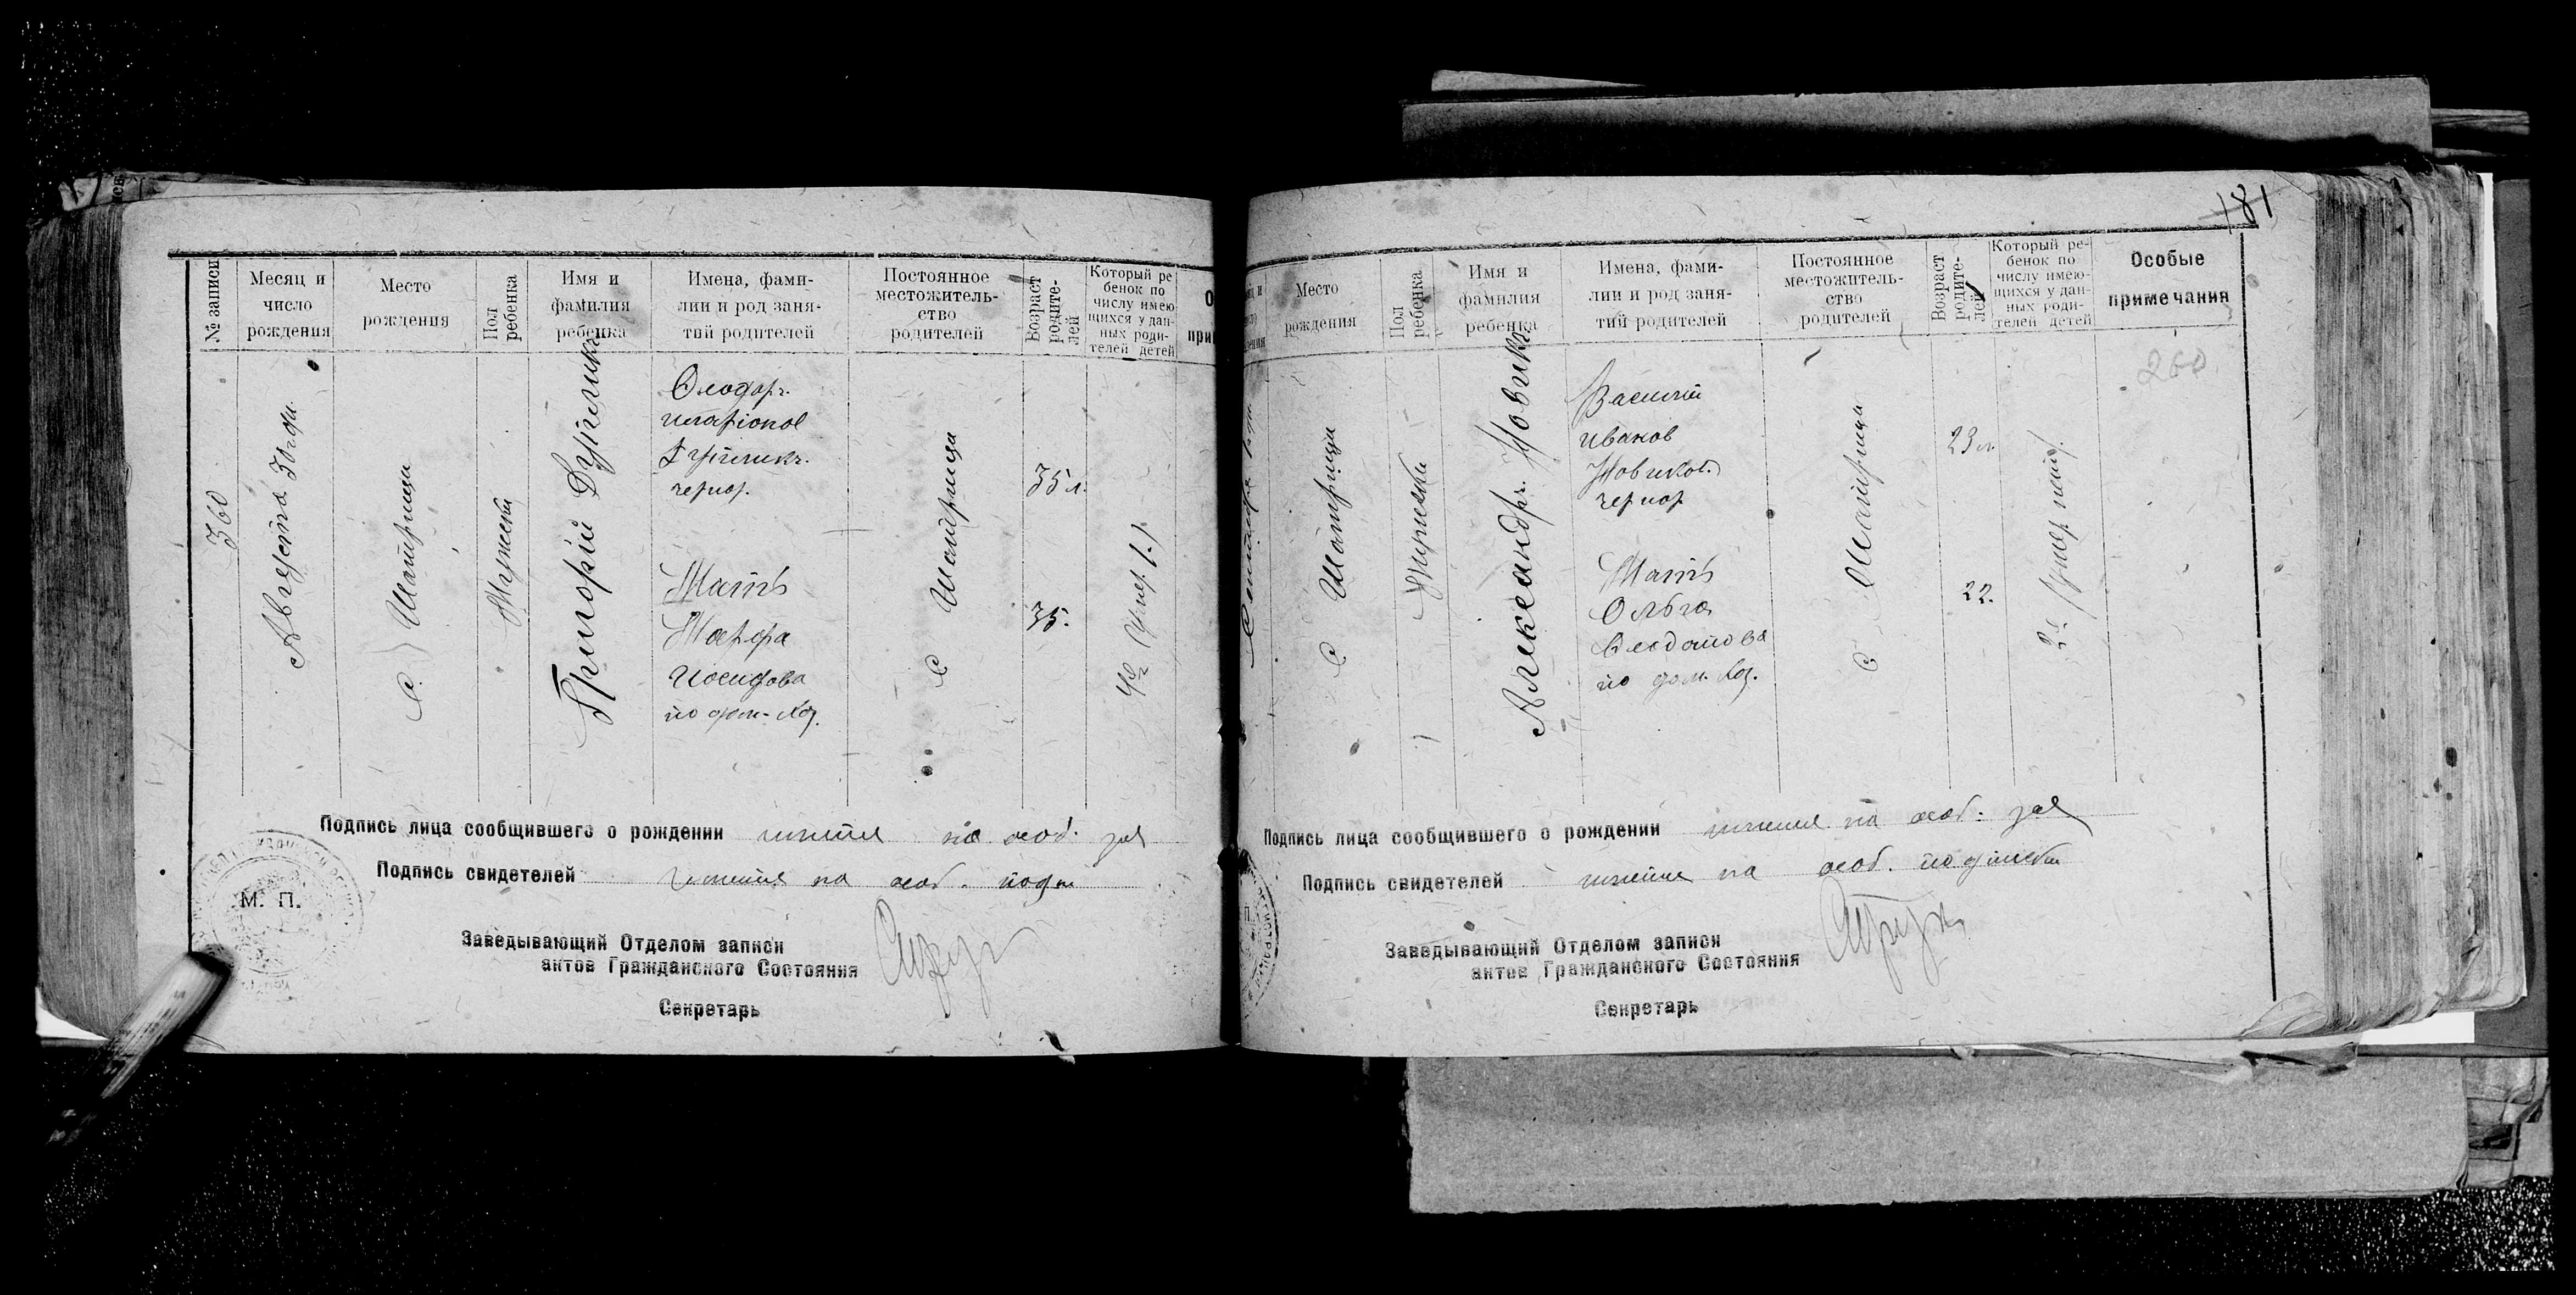 № записи
Месяц и
число
рождения
Место
рождения
Пол
ребенка
Имя и
фамилия
ребенка
Имена, фами-
лии и род заня-
тий родителей
Постоянное
местожитель-
ство
родителей
Возраст
родите-
лей
Который ре
бенок по
числу имею
щихся у дан-
ных роди-
телей детей
360
Августа 30 го дн.
с. Шатрищи
Мужски
Григорий
Феодоръ
чернор.
Мать
Марфа
Иосифова
по дом. хоз.
с Шатрищи
35 л.
35.
4й (умер. 1.)
Подпись лица сообщившего о рождении на особ. зая
Подпись свидетелей на особ. подп
М. П.
Заведывающий Отделом записи
актов Гражданского Состояния
Секретарь
181
Место
рождения
Пол
ребенка
Имя и
фамилия
ребенка
Имена, фами-
лии и род заня-
тий родителей
Постоянное
местожитель-
ство
родителей
Возраст
родите-
лей
Который ре-
бенок по
числу имею-
щихся у дан-
ных роди-
телей детей
Особые
примечания
260
с Шатрищи
Мужски
Александръ Новикъ
Василий
Иванов
Новиков
чернор
Мать
Ольга
по дом. хоз.
с Шатрищи
23 л
22.
2й
Подпись лица сообщившего о рождении на особ. зая
Подпись свидетелей на особ. подписка
Заведывающий Отделом записи
актов Гражданского Состояния
Секретарь